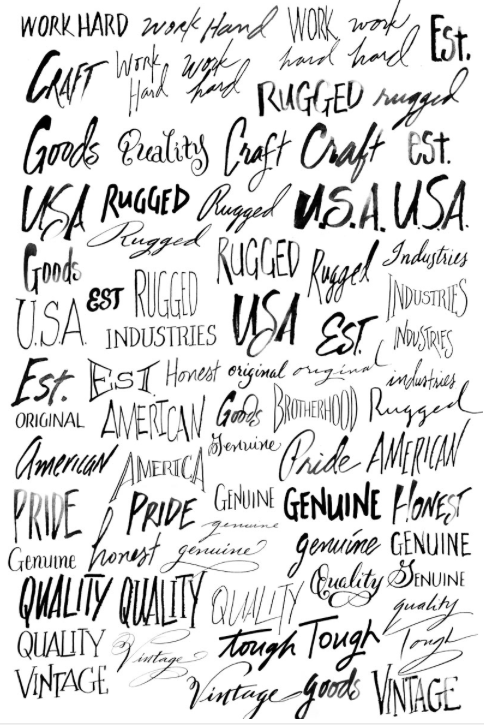 WORK HARD work Hard WORK hard work hard Est.
CRAFT Work Hard work hard RUGGED rugged
Goods Quality Craft Craft est.
USA RUGGED Rugged U.S.A. U.S.A.
Rugged
Goods RUGGED Rugged Industries
U.S.A. EST RUGGED INDUSTRIES USA EST. INDUSTRIES
INDUSTRIES
Est. EST. Honest original original industries
ORIGINAL AMERICAN Goods BROTHERHOOD Rugged
American AMERICA Genuine Pride AMERICAN
PRIDE PRIDE GENUINE GENUINE HONEST
genuine
Genuine honest genuine genuine GENUINE
QUALITY QUALITY QUALITY Quality GENUINE
quality
QUALITY Vintage tough Tough Tough
VINTAGE Vintage goods VINTAGE